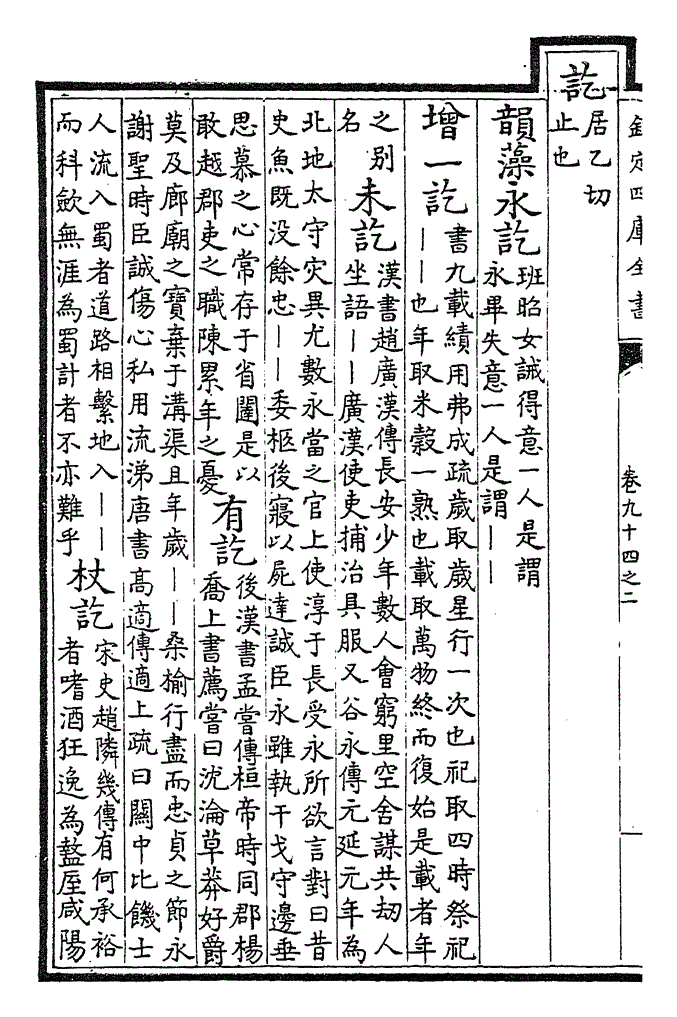 欽定四庫全書
卷九十四之二
訖
居乙切
止也
韻藻永訖
班昭女誡得意一人是謂
永畢失意一人是謂——
增一訖
書九載績用弗成疏歲取歲星行一次也祀取四時祭祀
——也年取米穀一熟也載取萬物終而復始是載者年
之别
名
未訖
漢書趙廣漢傳長安少年數人會窮里空舍謀共劫人
坐語——廣漢使吏捕治具服又谷永傳元延元年為
北地太守灾異尤數永當之官上使淳于長受永所欲言對曰昔
史魚既没餘忠——委柩後寢以屍達誠臣永雖執干戈守邊垂
思慕之心常存于省闥是以
敢越郡吏之職陳累年之憂
有訖
後漢書孟嘗傳桓帝時同郡楊
喬上書薦嘗曰沈淪草莽好爵
莫及廊廟之寶棄于溝渠且年歲——桑榆行盡而忠貞之節永
謝聖時臣誠傷心私用流涕唐書高適傳適上疏曰關中比饑士
人流入蜀者道路相繫地入——
而科歛無涯為蜀計者不亦難乎
杖訖
宋史趙隣幾傳有何承裕
者嗜酒狂逸為盩厔咸陽